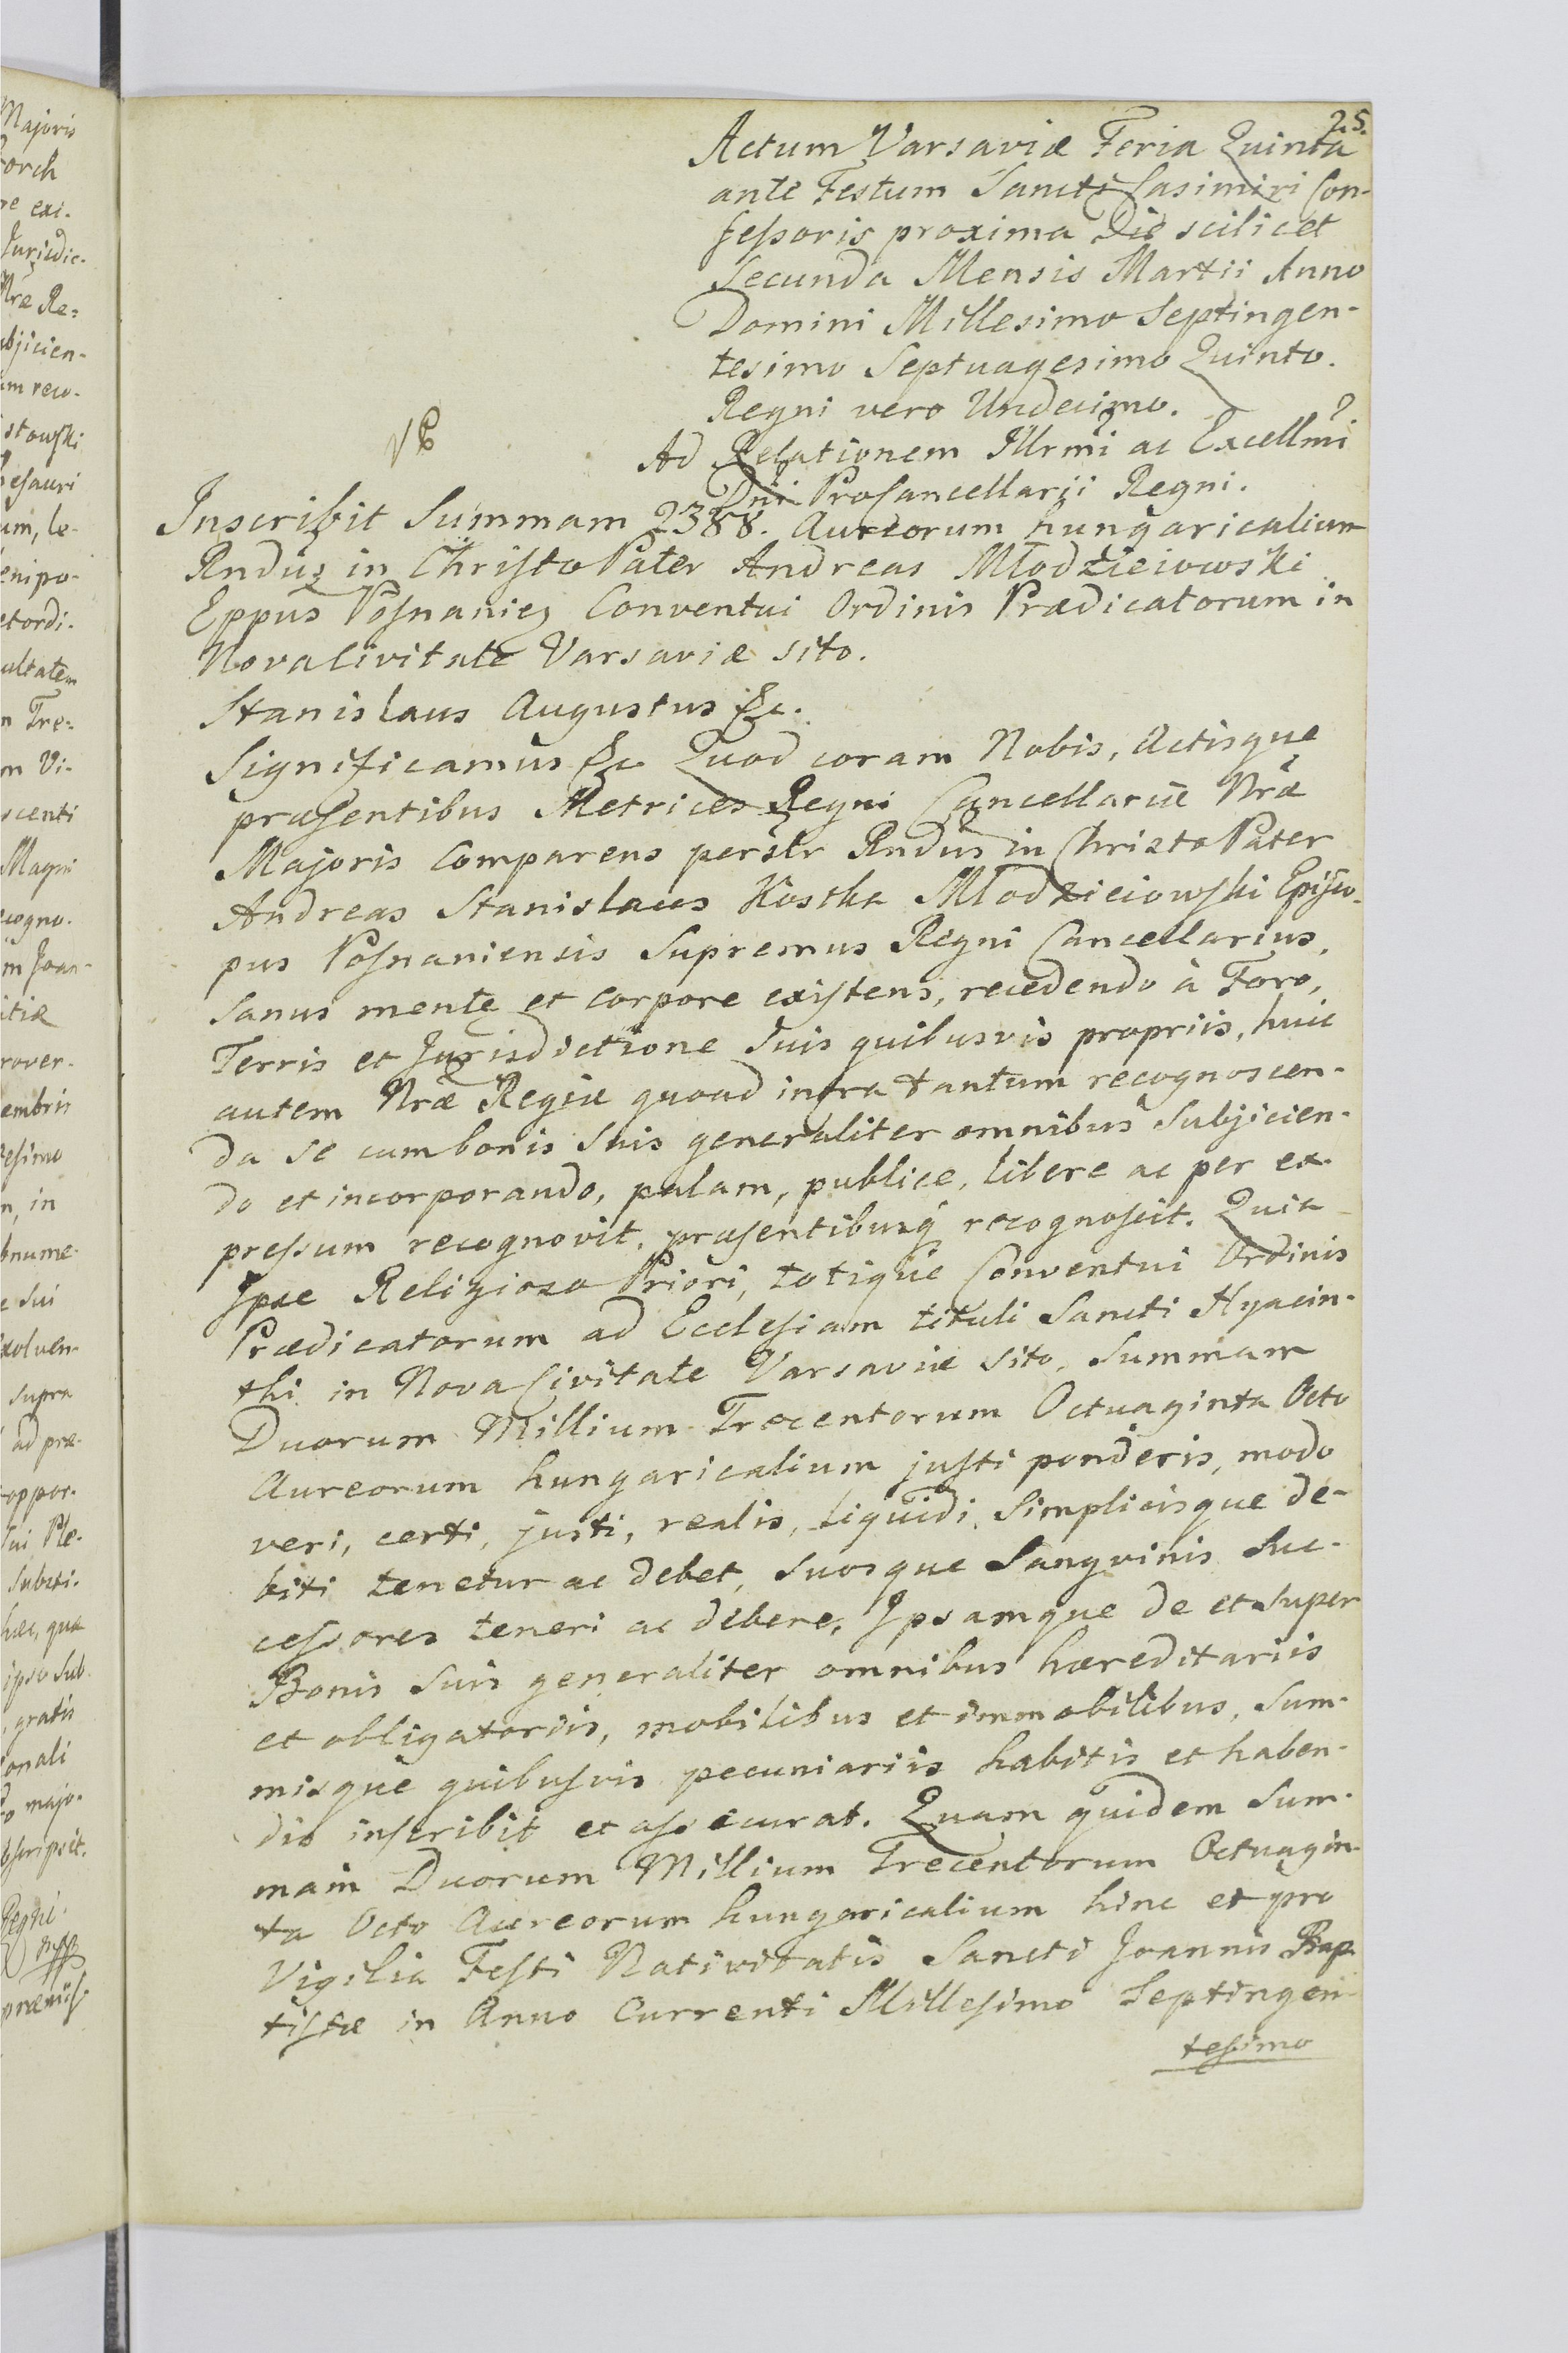 25.
Actum Varsaviæ Feria Quinta
ante Festum Sancti Casimiri Con-
feſsoris proxima Die scilicet
Secunda Mensis Martii Anno
Domini Millesimo Septingen-
tesimo Septuagesimo Quinto.
Regni vero Undecimo.
Ad Relationem Illrmi ac Excellmi
Dni ProCancellarji Regni.
Inscribit Summam 2388. Aureorum hungaricalium
Rndus in Chriſto Pater Andreas Młodzieiowski
Eppus Poſnanien Conventui Ordinis Prædicatorum in
Nova Civitate Varsaviæ sito.
Stanislaus Augustus &c.
Significamus &c Quod coram Nobis, Actisque
præſentibus Metrices Regni Cancellariæ Nræ
Majoris Comparens personlr Rndus in Christo Pater
Andreas Stanislaus Kostka Młodzieiowſki Epiſco-
pus Poſnaniensis Supremus Regni Cancellarius,
Sanus mente et Corpore exiſtens, recedendo à Foro,
Terris et Jurisdictione Suis quibusvis propriis, huic
autem Nræ Regiæ quoad infra tantum recognoscen-
da se cum bonis Suis generaliter omnibus Subjicien-
do et incorporando, palam, publice, libere ac per ex-
preſsum recognovit, præſentibusq recognoſcit. Quia
Ipse Religioso Priori, totique Conventui Ordinis
Prædicatorum ad Eccleſiam tituli Sancti Hyacin-
thi in Nova Civitate Varsaviæ Sito, Summam
Duorum Millium Trecentorum Octuaginta Octo
Aureorum hungaricalium juſti ponderis, modo
veri, certi, justi, realis, liquidi, Simplicisque de-
biti tenetur ac debet, Suosque Sangvinis Suc-
ceſsores teneri ac debere, Ipsamque de et Super
Bonis Suis generaliter omnibus hæreditariis
et obligatoriis, mobilibus et immobilibus, Sum-
misque quibuſvis pecuniariis habitis et haben-
dis inſcribit et aſsecurat. Quam quidem Sum-
mam Duorum Millium Trecentorum Octuagin-
ta Octo Aureorum hungaricalium hinc et pro
Vigilia Feſti Nativitatis Sancti Joannis Bap-
tiſtæ in Anno Currenti Milleſimo Septingen-
teſimo
Majoris
exi-
Juriſdic-
Nræ Re=
bjicien-
um reco-
um, le-
enipo-
etordi-
ultatem
Tre-
Vi-
scenti
Magni
cogno-
Joan-
itiæ
rover-
embris
eſimo
n, in
e Sui
olven-
Supra
ad præ-
oppor-
Sui Ple-
Substi-
hæc, qua
ipso Sub-
gratis
onali
majo-
bſcripsit.
Regni.